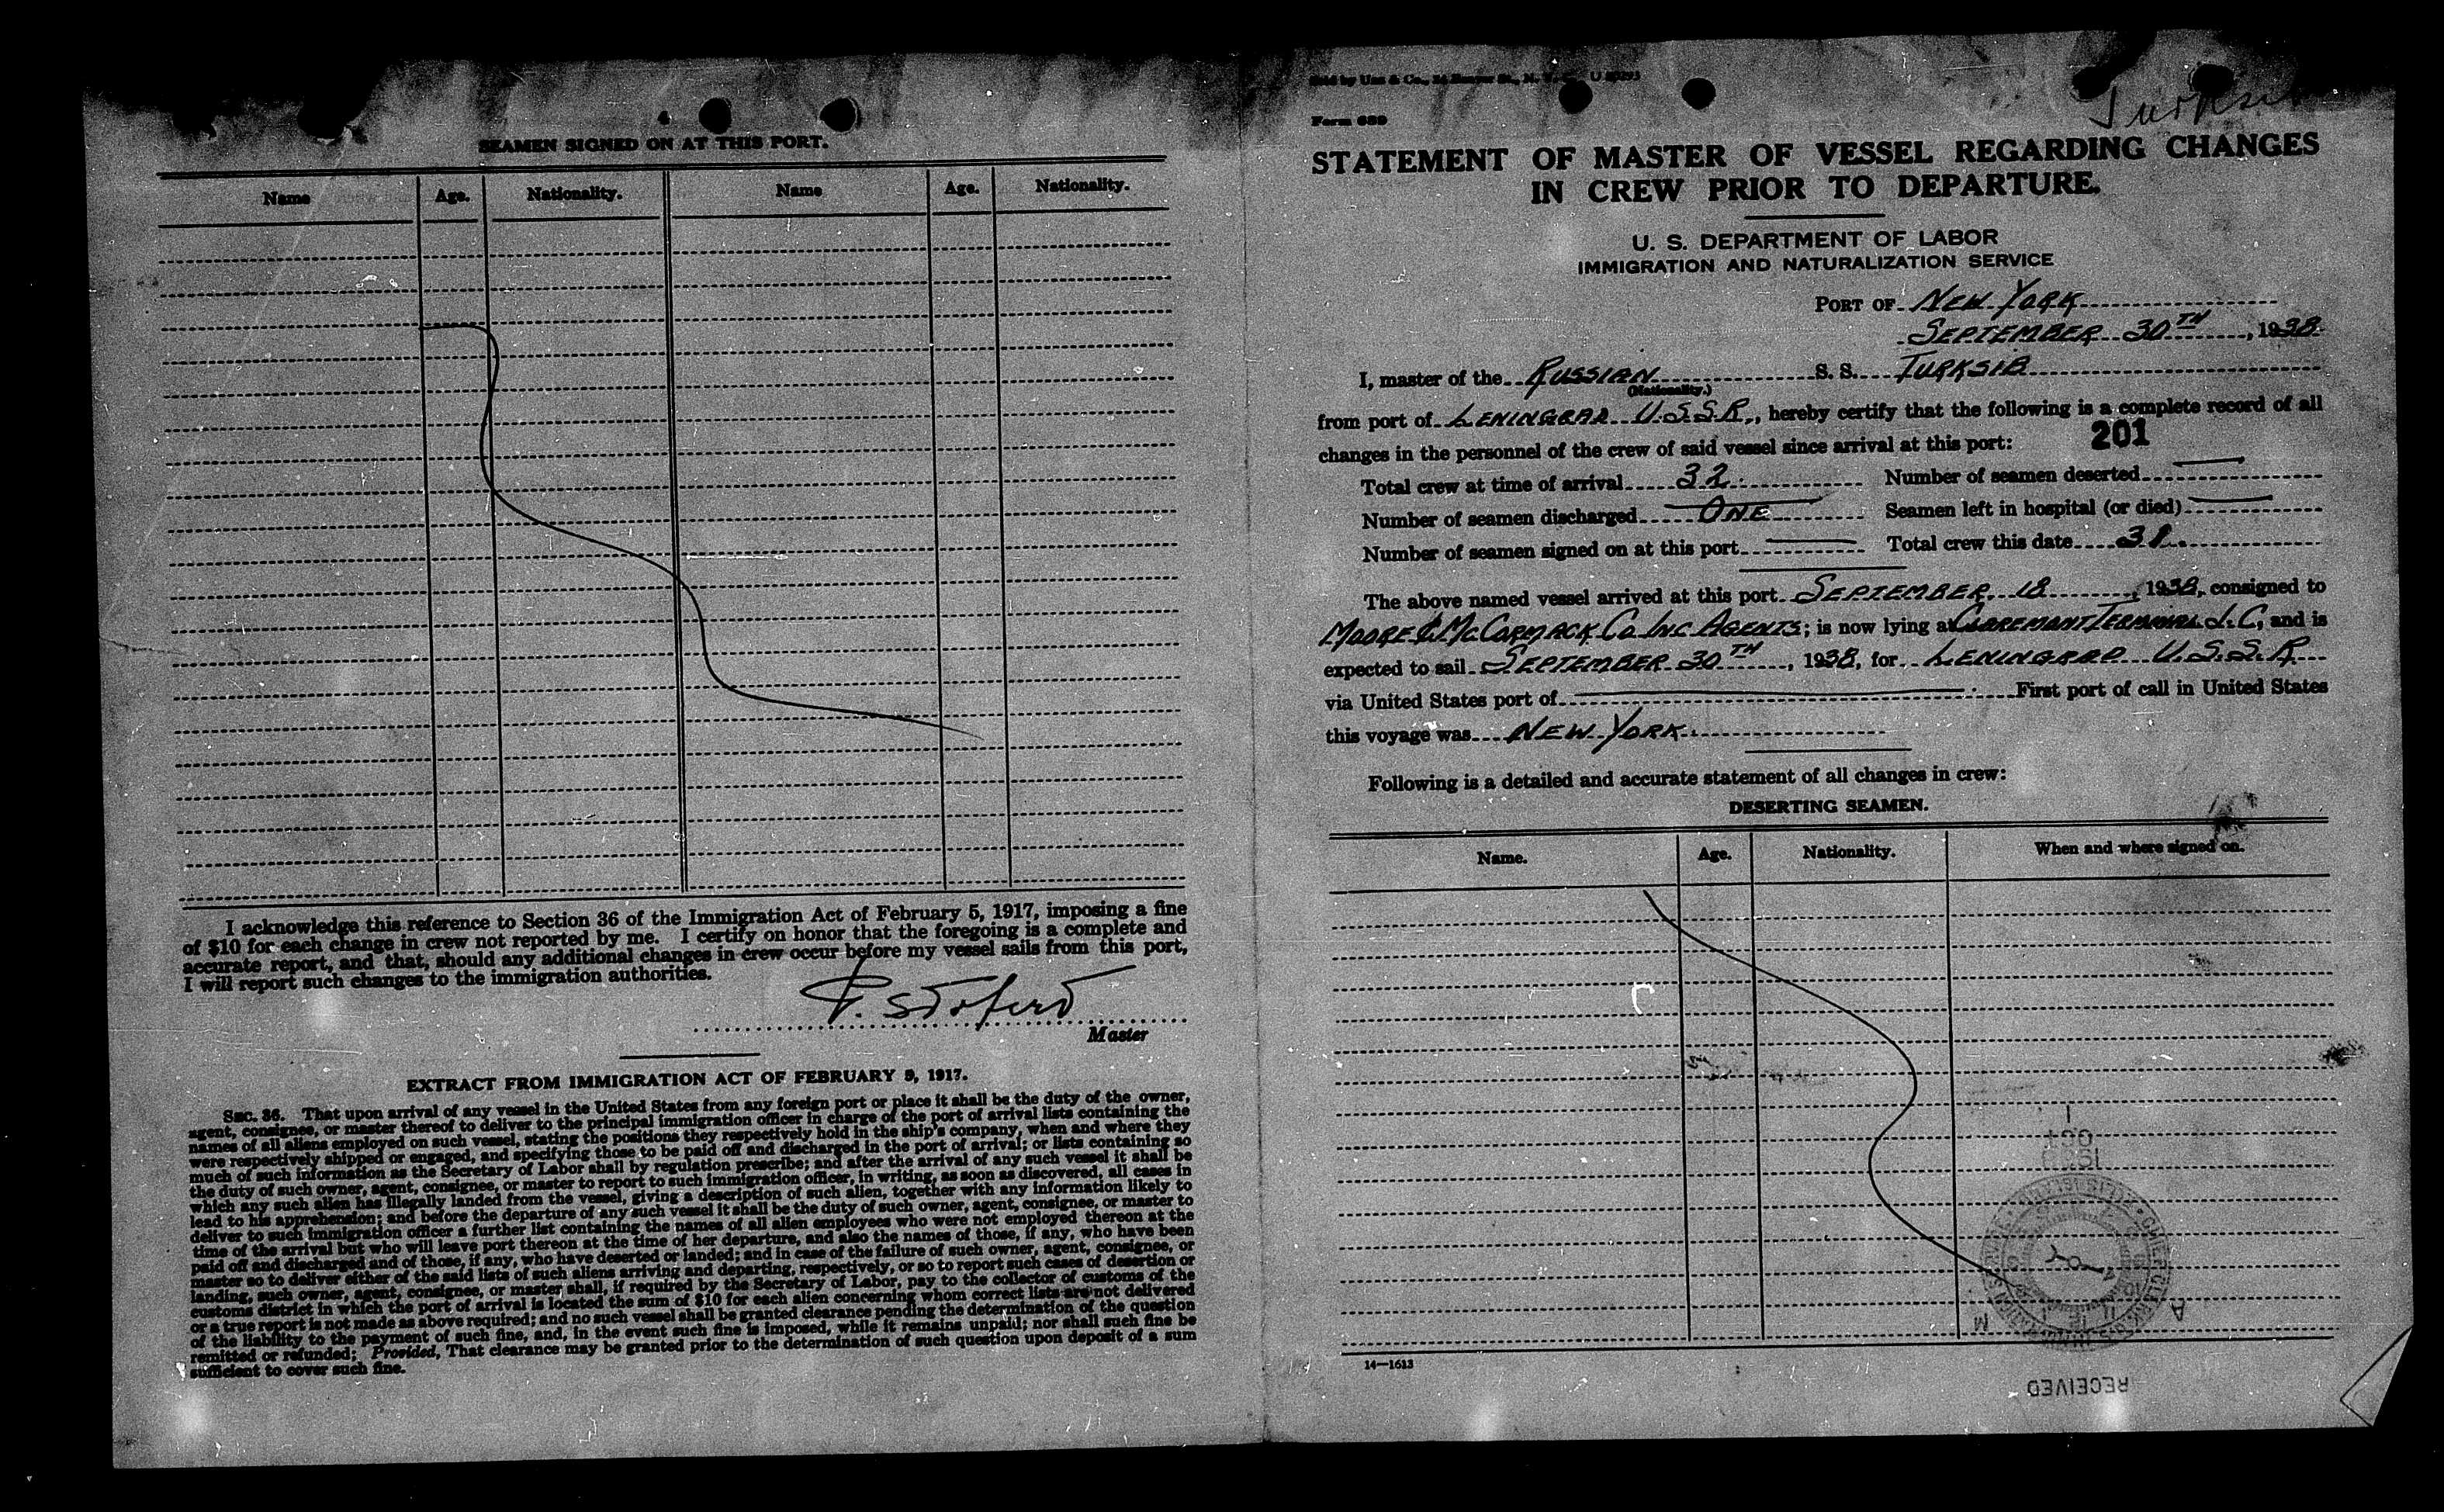 4
SEAMEN SIGNED ON AT THIS PORT.
Name Age. Nationality. Name Age. Nationality.
I acknowledge this reference to Section 36 of the Immigration Act of February 5, 1917, imposing a fine
of $10 for each change in crew not reported by me. I certify on honor that the foregoing is a complete and
accurate report, and that, should any additional changes in crew occur before my vessel sails from this port,
I will report such changes to the immigration authorities.
Master
EXTRACT FROM IMMIGRATION ACT OF FEBRUARY 5, 1917.
SEC. 36. That upon arrival of any vessel in the United States from any foreign port or place it shall be the duty of the owner,
agent, consignee, or master thereof to deliver to the principal immigration officer in charge of the port of arrival lists containing the
names of all aliens employed on such vessel, stating the positions they respectively hold in the ship's company, when and where they
were respectively shipped or engaged, and specifying those to be paid off and discharged in the port of arrival; or lists containing so
much of such information as the Secretary of Labor shall by regulation prescribe; and after the arrival of any such vessel it shall be
the duty of such owner, agent, consignee, or master to report to such immigration officer, in writing, as soon as discovered, all cases in
which any such alien has illegally landed from the vessel, giving a description of such alien, together with any information likely to
lead to his apprehension; and before the departure of any such vessel it shall be the duty of such owner, agent, consignee, or master to
deliver to such immigration officer a further list containing the names of all alien employees who were not employed thereon at the
time of the arrival but who will leave port thereon at the time of her departure, and also the names of those, if any, who have been
paid off and discharged and of those, if any, who have deserted or landed; and in case of the failure of such owner, agent, consignee, or
master so to deliver either of the said lists of such aliens arriving and departing, respectively, or so to report such cases of desertion or
landing, such owner, agent, consignee, or master shall, if required by the Secretary of Labor, pay to the collector of customs of the
customs district in which the port of arrival is located the sum of $10 for each alien concerning whom correct lists are not delivered
or a true report is not made as above required; and no such vessel shall be granted clearance pending the determination of the question
of the liability to the payment of such fine, and, in the event such fine is imposed, while it remains unpaid; nor shall such fine be
remitted or refunded; Provided, That clearance may be granted prior to the determination of such question upon deposit of a sum
sufficient to cover such fine.
Form 689
Turksib
STATEMENT OF MASTER OF VESSEL REGARDING CHANGES
IN CREW PRIOR TO DEPARTURE.
U. S. DEPARTMENT OF LABOR
IMMIGRATION AND NATURALIZATION SERVICE
PORT OF NEW YORK
SEPTEMBER 30TH, 1938
I, master of the RUSSIAN S. S. TURKSIB
(Nationality.)
from port of LENINGRAD U.S.S.R., hereby certify that the following is a complete record of all
changes in the personnel of the crew of said vessel since arrival at this port: 201
Total crew at time of arrival 32. Number of seamen deserted
Number of seamen discharged ONE Seamen left in hospital (or died)
Number of seamen signed on at this port Total crew this date 31.
The above named vessel arrived at this port SEPTEMBER 18, 1938, consigned to
MOORE & McCORMACK Co INC AGENTS; is now lying at CLAREMONT TERMINAL J.C, and is
expected to sail SEPTEMBER 30TH, 1938, for LENINGRAD U.S.S.R
via United States port of First port of call in United States
this voyage was NEW YORK.
Following is a detailed and accurate statement of all changes in crew:
DESERTING SEAMEN.
Name. Age. Nationality. When and where signed on.
14—1613
RECEIVED